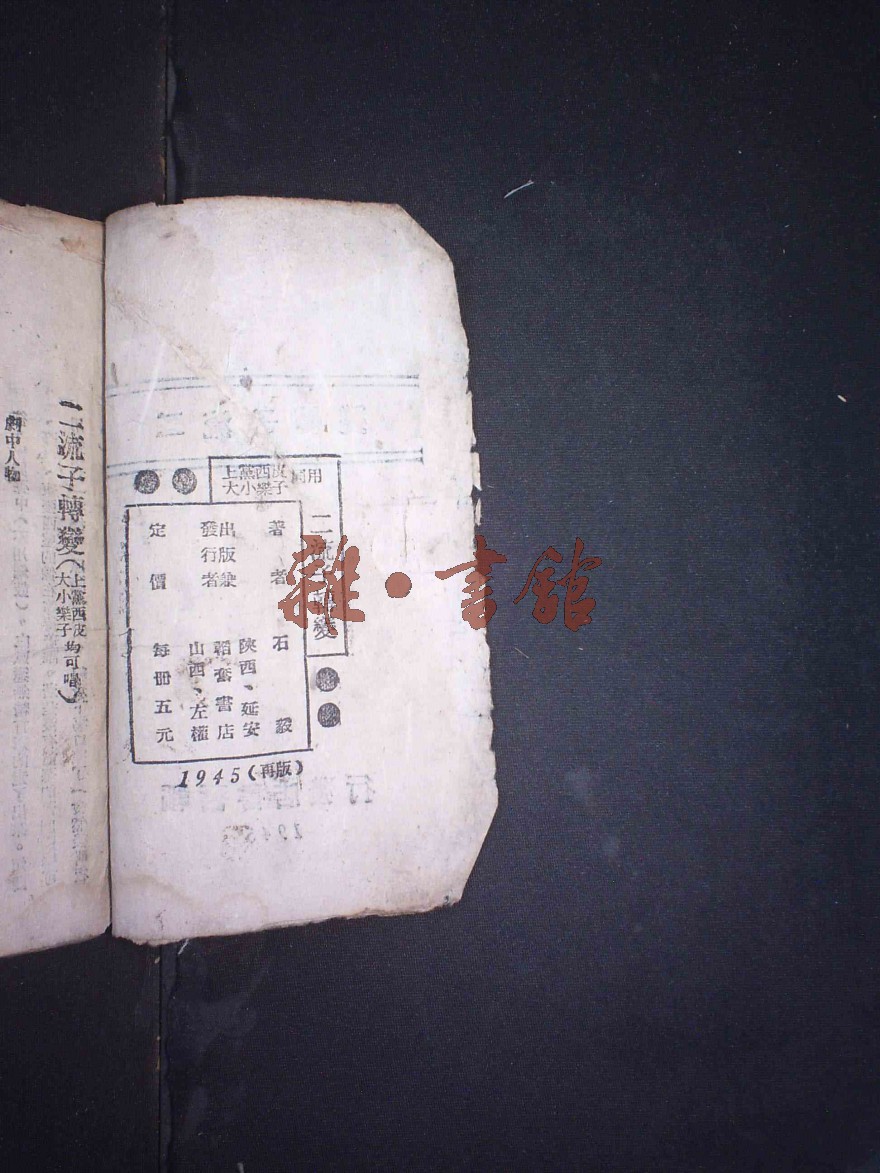 上黨西皮
大小樂子
同用
二流子轉變
著者 石毅
出版兼
發行者
陝西、延安
韜奮書店
山西、左權
定價 每冊五元
1945(再版)
二流子轉變(上黨西皮
大小樂子均可唱)
劇中人物
雜·書館